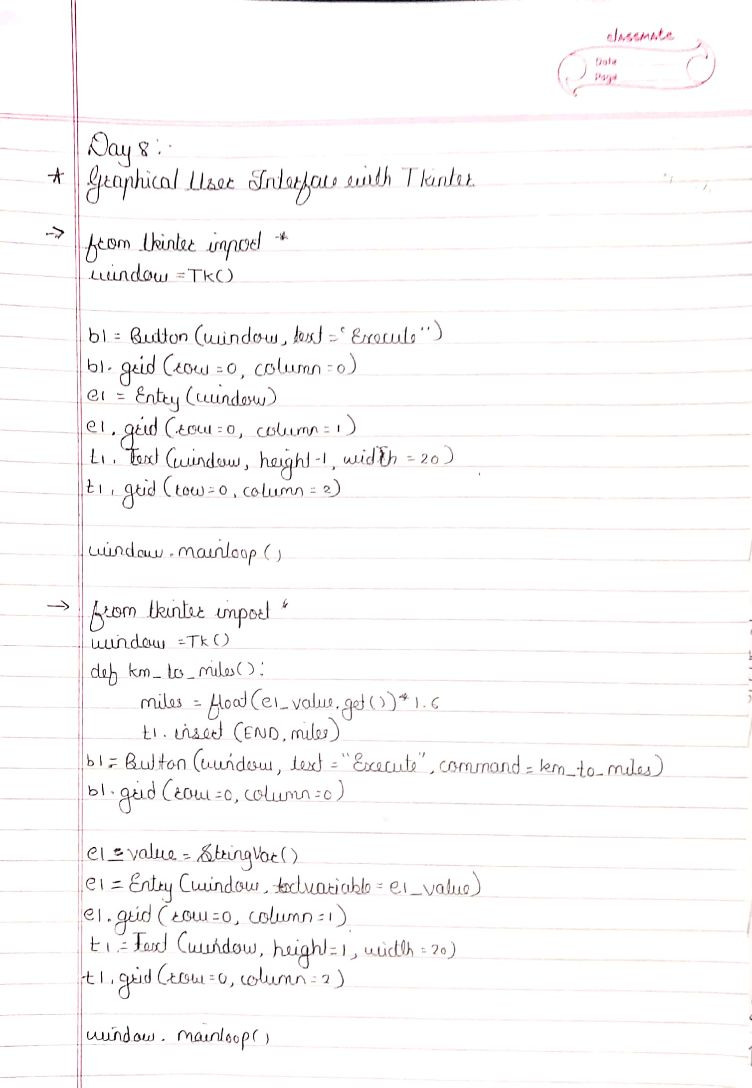 classmate
Date
Page
Day 8:-
* Graphical User Interface with Tkinter
→ from tkinter import *
window = Tk()
b1 = Button (window, text = "Execute")
b1. grid (row = 0, column = 0)
e1 = Entry (window)
e1. grid (row = 0, column = 1)
t1. Text (window, height-1, width = 20)
t1. grid (row=0, column = 2)
window. mainloop ()
→ from tkinter import *
window = Tk ()
def km_to_miles():
miles = float(e1_value.get())*1.6
t1. insert (END, miles)
b1 = Button (window, text = "Execute", command = km_to_miles)
b1. grid (row=0, column=0)
e1=value = StringVar()
e1 = Entry (window, textvariable = e1_value)
e1. grid (row=0, column=1)
t1 = Text (window, height=1, width = 20)
t1. grid (row=0, column = 2)
window. mainloop()